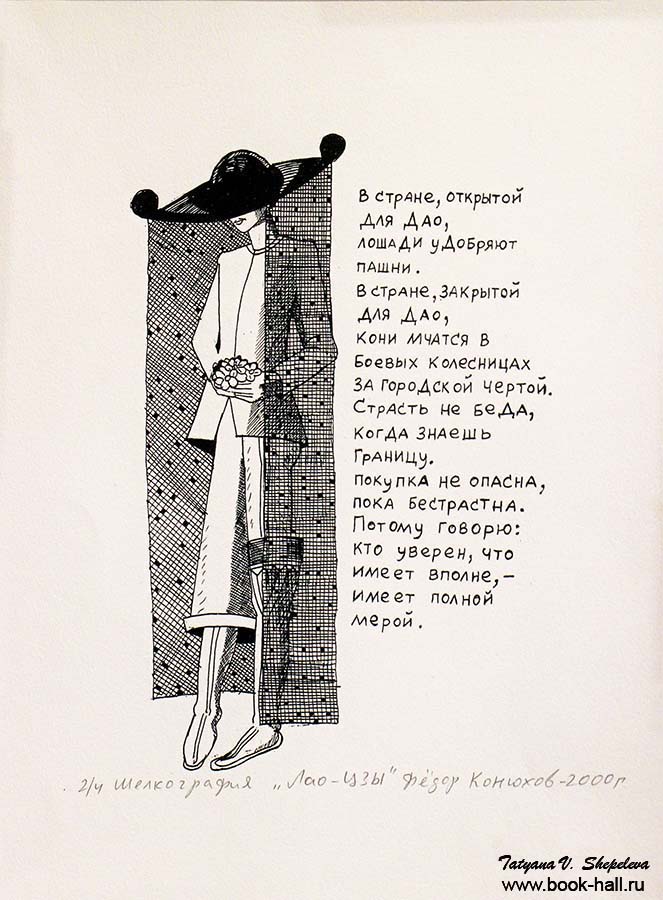 В стране, открытой
для Дао,
лошади удобряют
пашни.
В стране, закрытой
для Дао,
кони мчатся в
боевых колесницах
за городской чертой.
Страсть не беда,
когда знаешь
границу.
Покупка не опасна,
пока бестрастна.
Потому говорю:
кто уверен, что
имеет вполне, –
имеет полной
мерой.
2/ч шелкография „Лао-Цзы" Фёдор Конюхов - 2000 г
Tatyana V. Shepeleva
www.book-hall.ru